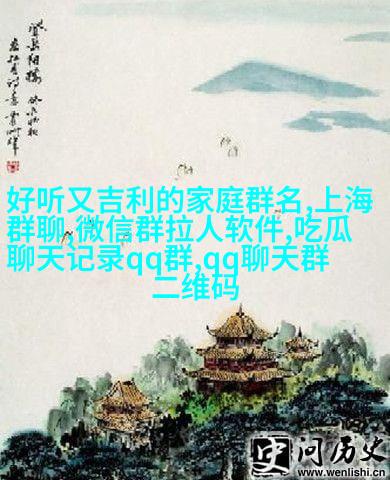 好听又吉利的家庭群名,上海
群聊,微信群拉人软件,吃瓜
聊天记录qq群,qq聊天群
二维码
问历史
www.wenlishi.cn